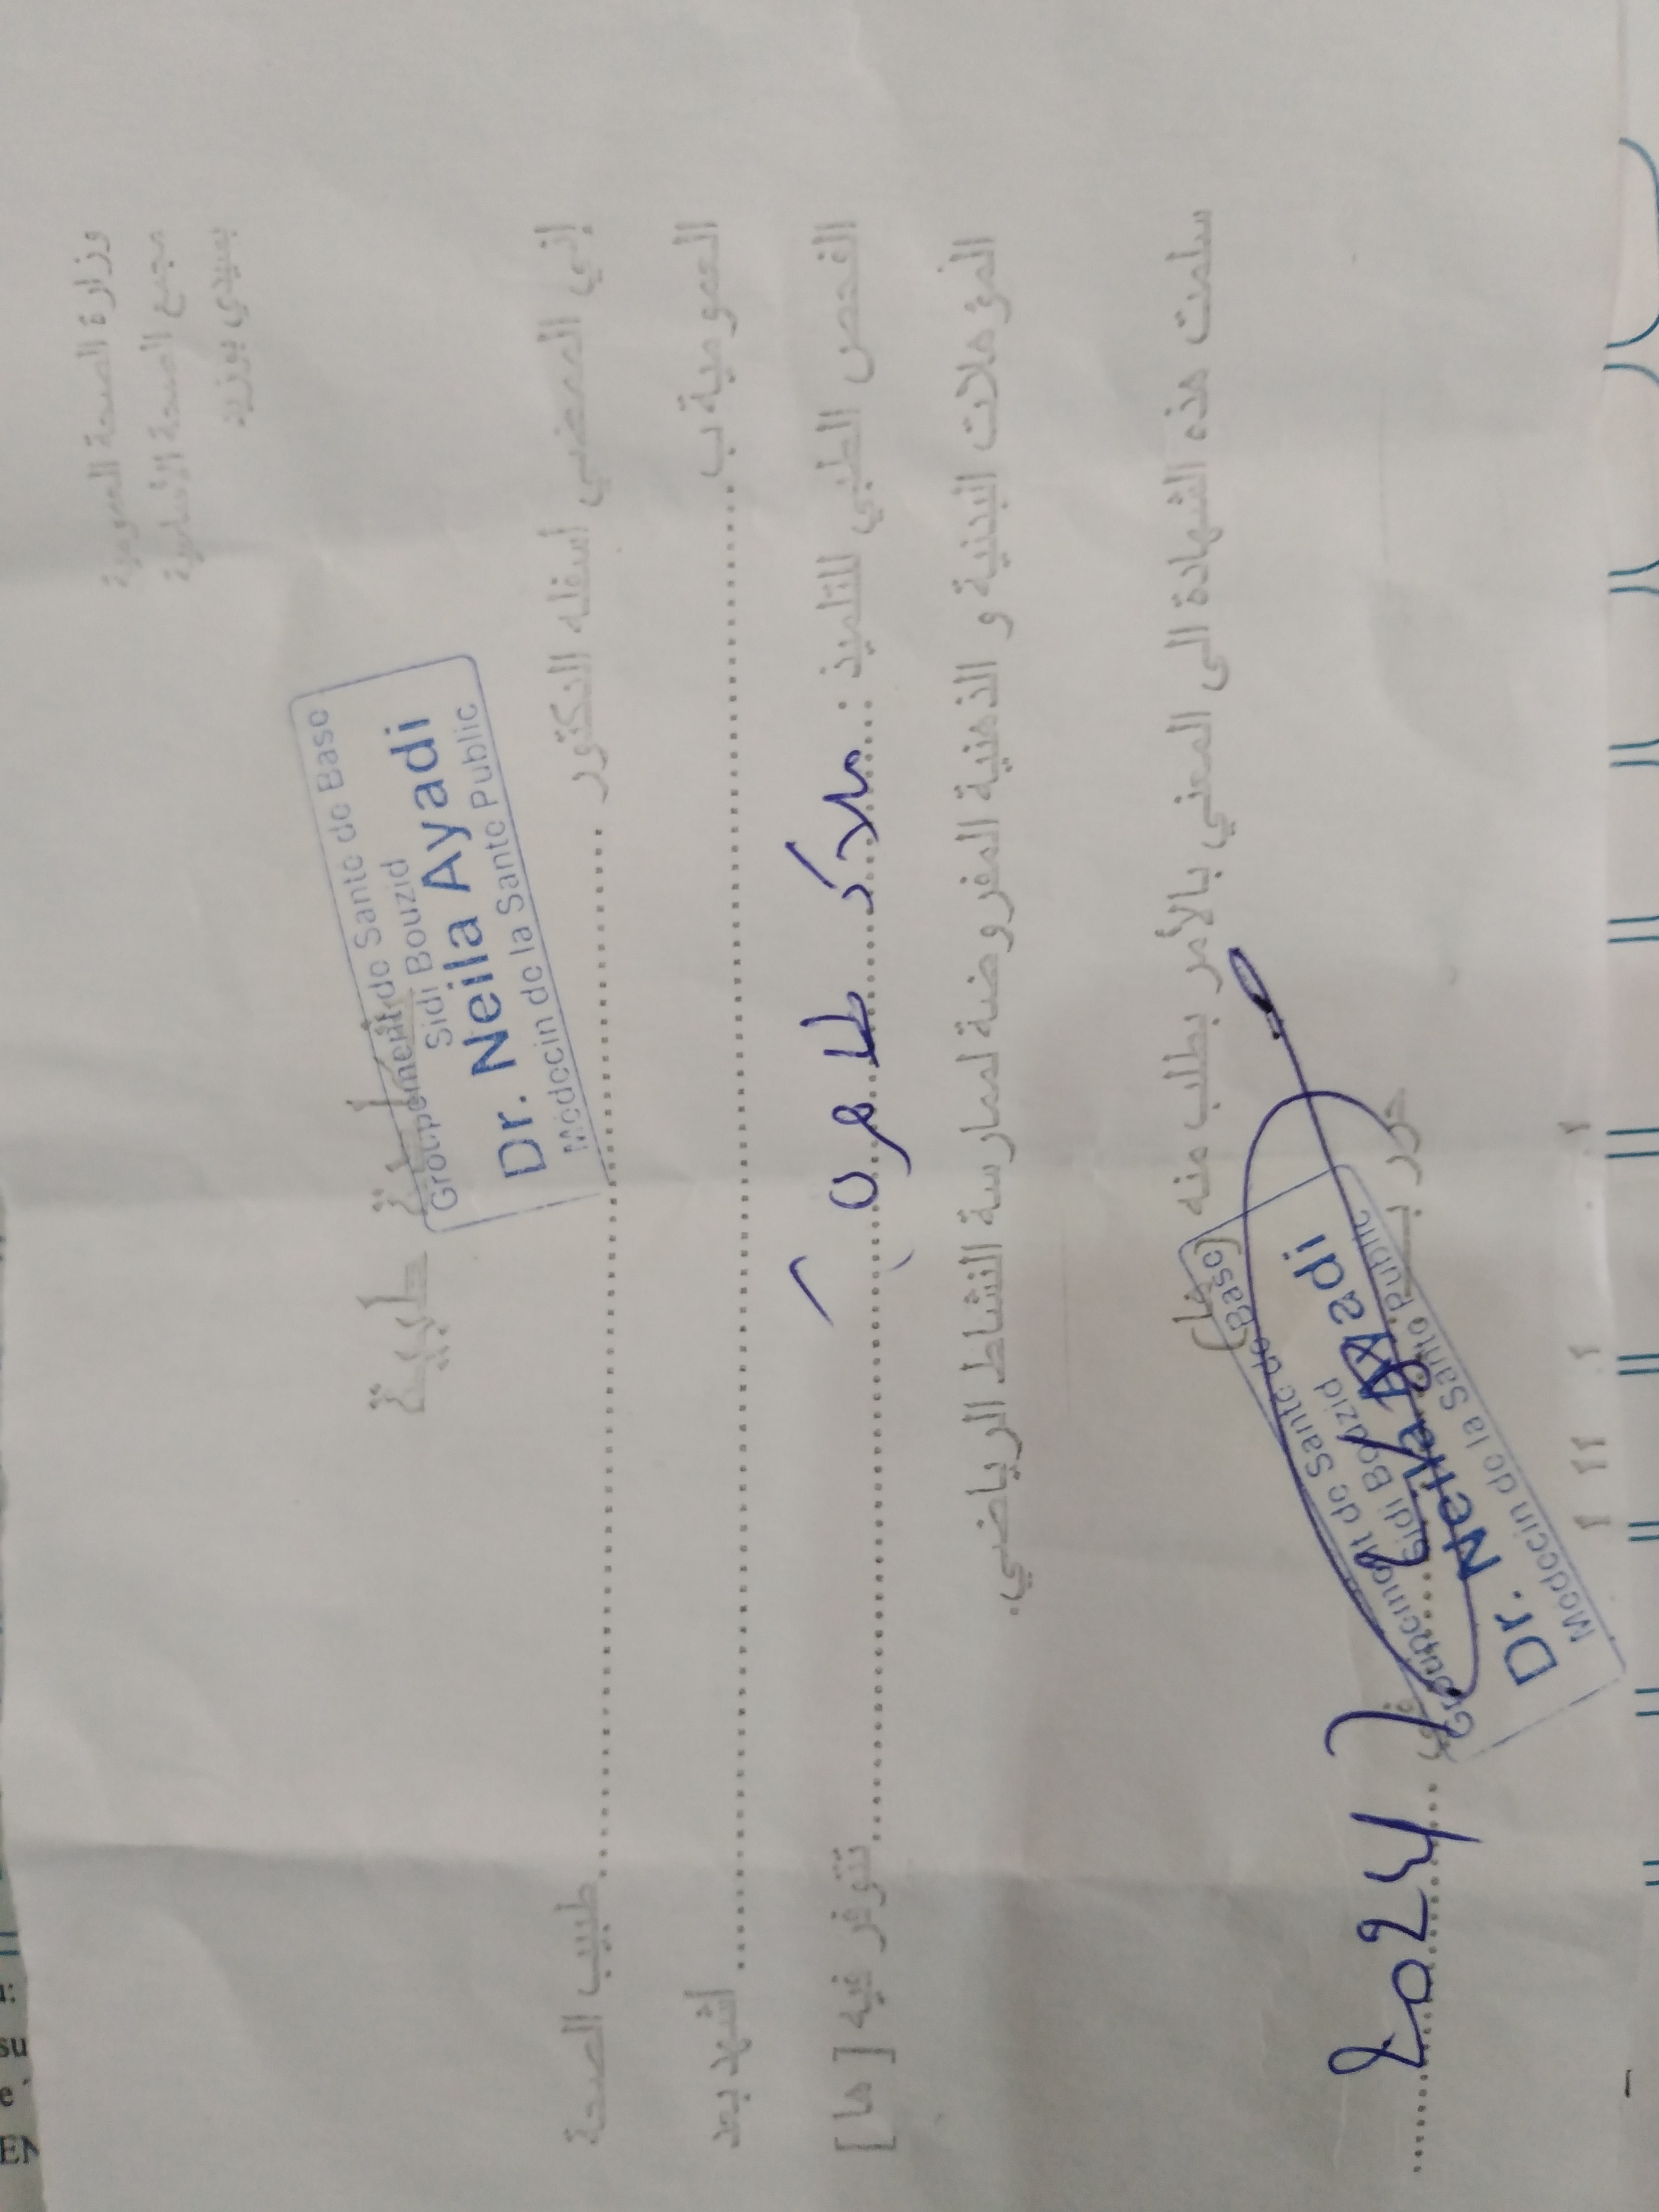 وزارة الصحة العمومية
مجمع الصحة الأساسية
بسيدي بوزيد
شهادة طبية
Groupement de Sante de Base
Sidi Bouzid
Dr. Neila Ayadi
Medecin de la Sante Public
إني الممضي أسفله الدكتور ........ طبيب الصحة
العمومية ب ........ أشهد بعد
الفحص الطبي للتلميذ : ........ تتوفر فيه [ ها ]
المؤهلات البدنية و الذهنية المفروضة لممارسة النشاط الرياضي.
سلمت هذه الشهادة الى المعني بالأمر بطلب منه (ها)
حرر ب ........ في ........ 2024
Groupement de Sante de Base
Sidi Bouzid
Dr. Neila Ayadi
Medecin de la Sante Public